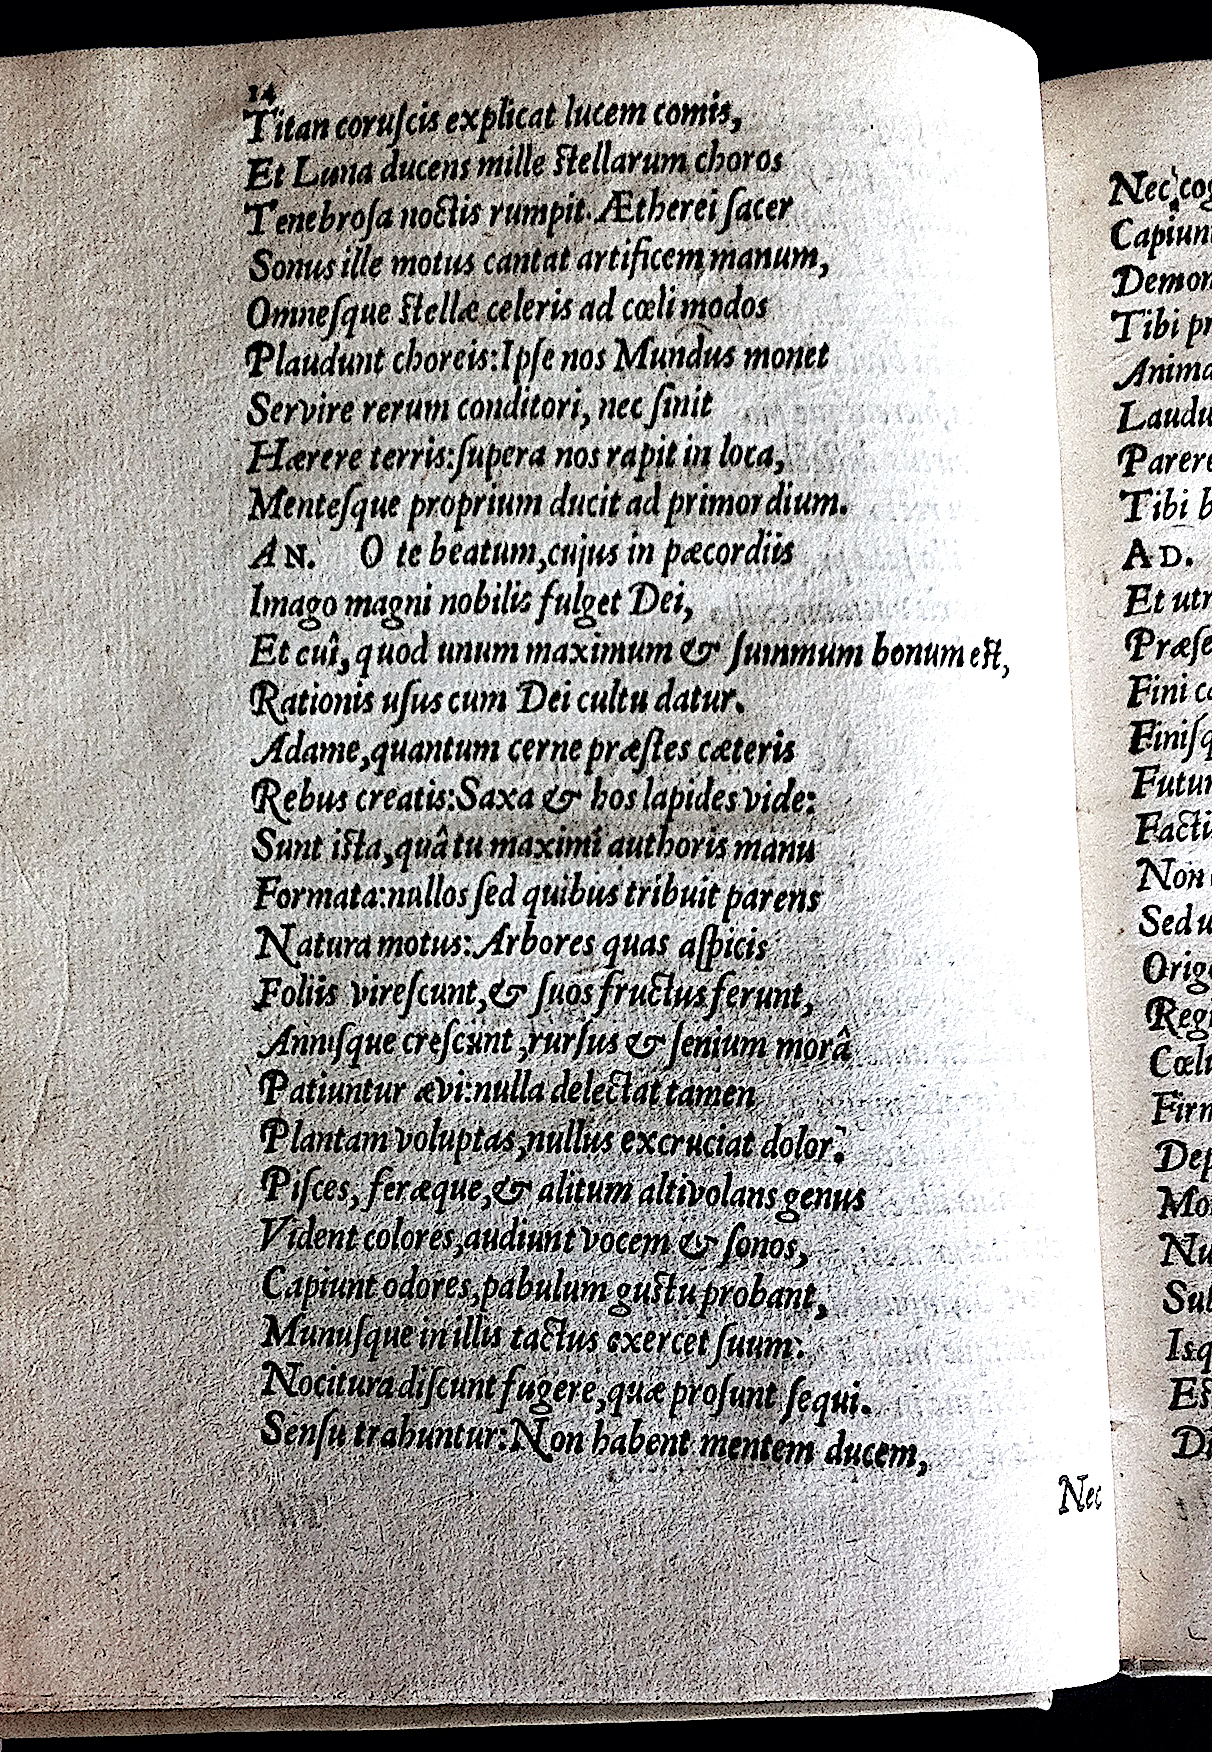 14
Titan coruſcis explicat lucem comis,
Et Luna ducens mille ſtellarum choros
Tenebroſa noctis rumpit. Ætherei ſacer
Sonus ille motus cantat artificem manum,
Omneſque ſtellæ celeris ad cœli modos
Plaudunt choreis: Ipſe nos Mundus monet
Servire rerum conditori, nec ſinit
Hærere terris: ſupera nos rapit in loca,
Menteſque proprium ducit ad primordium.
AN. O te beatum, cujus in pæcordiis
Imago magni nobilis fulget Dei,
Et cuî, quod unum maximum & ſummum bonum eſt,
Rationis uſus cum Dei cultu datur.
Adame, quantum cerne præſtes cæteris
Rebus creatis: Saxa & hos lapides vide:
Sunt iſta, quâ tu maximi authoris manu
Formata: nullos ſed quibus tribuit parens
Natura motus: Arbores quas aſpicis
Foliis vireſcunt, & ſuos fructus ferunt,
Anniſque creſcunt, rurſus & ſenium morâ
Patiuntur ævi: nulla delectat tamen
Plantam voluptas, nullus excruciat dolor:
Piſces, feræque, & alitum altivolans genus
Vident colores, audiunt vocem & ſonos,
Capiunt odores, pabulum guſtu probant,
Munuſque in illis tactus exercet ſuum:
Nocitura diſcunt fugere, quæ proſunt ſequi.
Senſu trahuntur: Non habent mentem ducem,
Nec
Nec
Tibi
Tibi
AD.
Et
Fini
Non
Sed